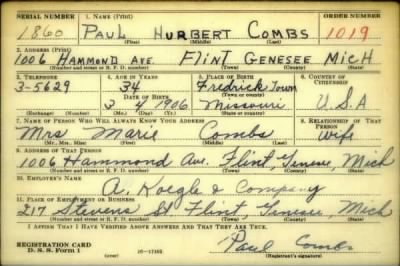 SERIAL NUMBER 1. NAME (Print) ORDER NUMBER
1860 PAUL HURBERT COMBS 1019
(First) (Middle) (Last)
2. ADDRESS (Print)
1006 HAMMOND AVE. FLINT GENESEE MICH
(Number and street or R. F. D. number) (Town) (County) (State)
3. TELEPHONE 4. AGE IN YEARS 5. PLACE OF BIRTH 6. COUNTRY OF CITIZENSHIP
3-5629 34 Fredrick Town
DATE OF BIRTH (Town or county)
3 4 1906 Missouri U.S.A
(Exchange) (Number) (Mo.) (Day) (Yr.) (State or country)
7. NAME OF PERSON WHO WILL ALWAYS KNOW YOUR ADDRESS 8. RELATIONSHIP OF THAT PERSON
Mrs Marie Combs Wife
(Mr., Mrs., Miss) (First) (Middle) (Last)
9. ADDRESS OF THAT PERSON
1006 Hammond Ave. Flint, Genesee, Mich
(Number and street or R. F. D. number) (Town) (County) (State)
10. EMPLOYER'S NAME
A. Koegle & Company
11. PLACE OF EMPLOYMENT OR BUSINESS
217 Stevens St Flint, Genesee, Mich
(Number and street or R. F. D. number) (Town) (County) (State)
I AFFIRM THAT I HAVE VERIFIED ABOVE ANSWERS AND THAT THEY ARE TRUE.
REGISTRATION CARD
D. S. S. Form 1 16-17105 Paul Combs
(Registrant's signature)